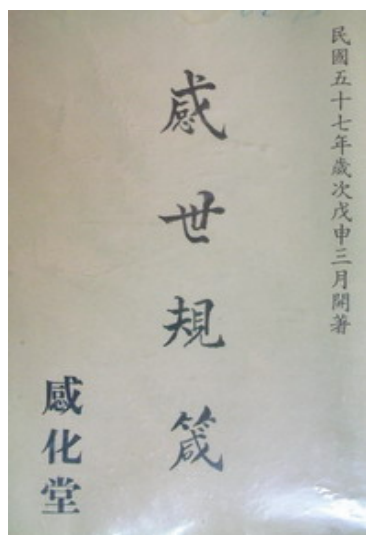 民國五十七年歲次戊申三月開著
感世規箴
感化堂